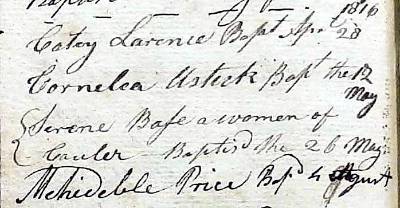 1816
Catey Larence Bapt Aprl 28
Cornelea Ustick Bapt the 12
May
Serene Base a women of
Cauler Baptisd the 26 May
Mehedeble Price Bapd 4 August